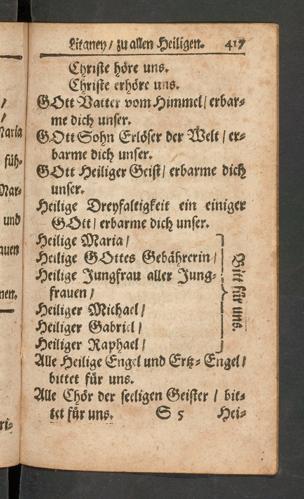 Litaney / zu allen Heiligen. 417
Christe höre uns.
Christe erhöre uns.
GOtt Vatter vom Himmel / erbar-
me dich unser.
GOtt Sohn Erlöser der Welt / er-
barme dich unser.
GOtt Heiliger Geist / erbarme dich
unser.
Heilige Dreyfaltigkeit ein einiger
GOtt / erbarme dich unser.
Heilige Maria /
Heilige GOttes Gebährerin /
Heilige Jungfrau aller Jung-
frauen /
Heiliger Michael /
Heiliger Gabriel /
Heiliger Raphael /
Bitt für uns.
Alle Heilige Engel und Ertz-Engel /
bittet für uns.
Alle Chör der seeligen Geister / bit-
tet für uns. S 5 Hei-